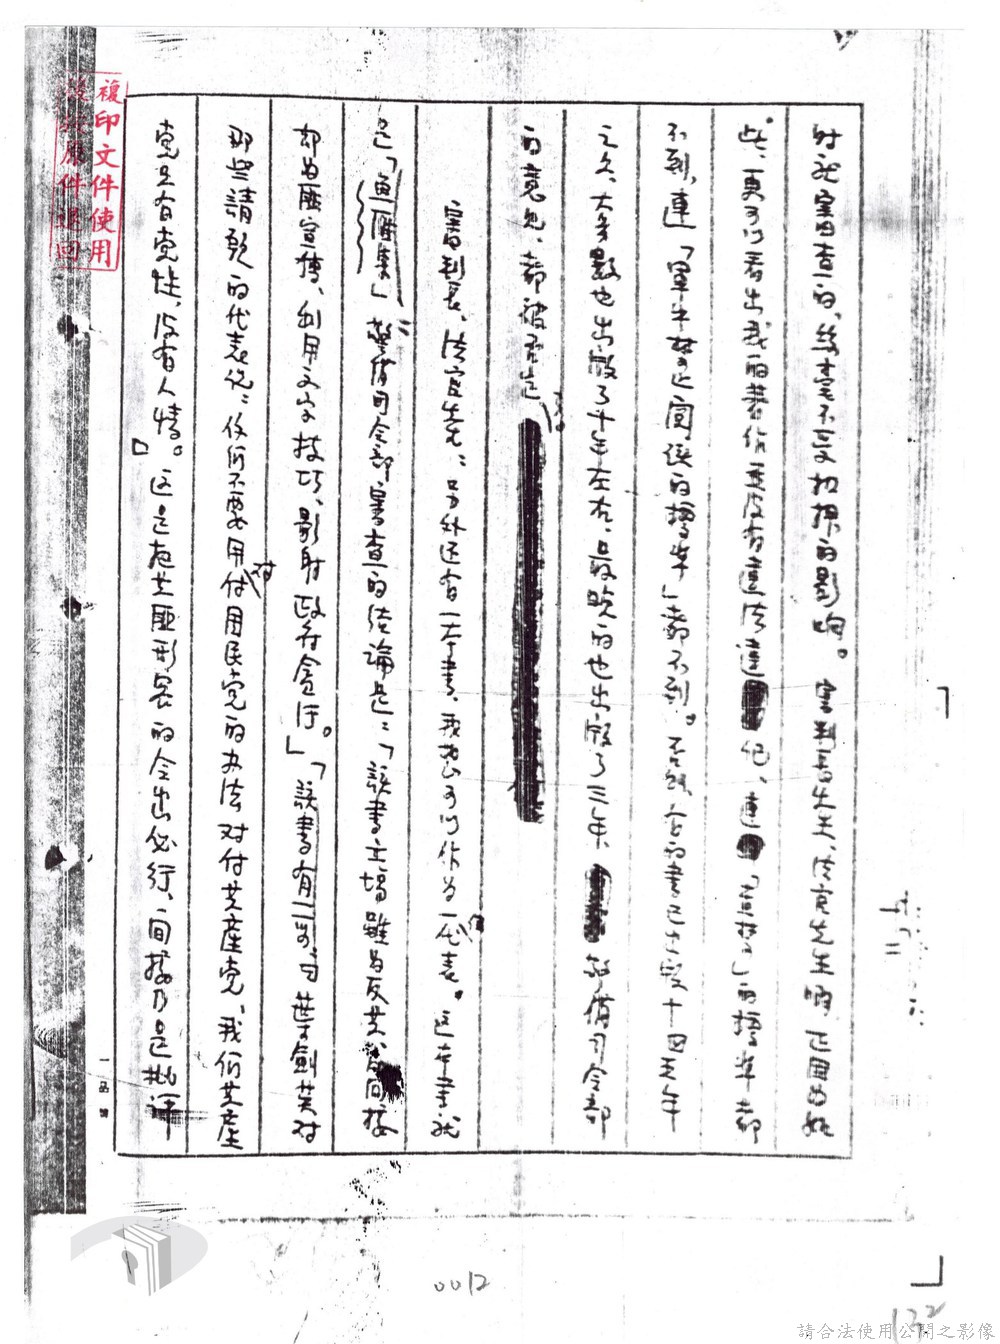 對我審查的，絲毫不受權押的影响。審判長先生、法官先生啊，正因為如
此，更可以看出我的著作並沒有違法違紀，連「查禁」的標準都
不到，連「軍中禁止閱讀的標準」都不到。不然，它的書已出版十四五年
之久，大多數也出版了十年左右，最晚的也出版了三年，警備司令部
的意見，都被否定
審判長、法官先生：另外还有一本書，我想可以作为一代表。这本書就
是「画厝集」警備司令部審查的结論是：「該書立場雖為反共，間接
却为匪宣傳，利用文字技巧，影射政府貪污。」「該書有一句，葉劍英对
那些請歌的代表说：你们不要用对付国民党的办法对付共產党，我们共產
党只有党性，没有人情。」这是把共匪形容的令出必行，间接乃是批评
複印文件使用
後將原件退回
一品質
0012
122
請合法使用公開之影像